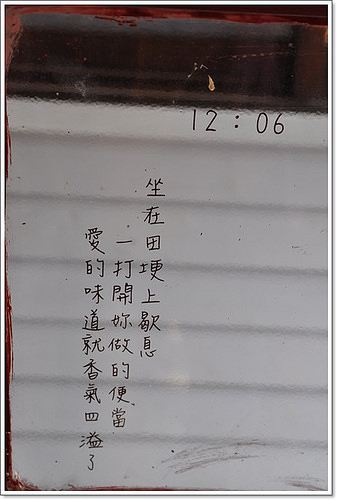 12:06
坐在田埂上歇息
一打開妳做的便當
愛的味道就香氣四溢了